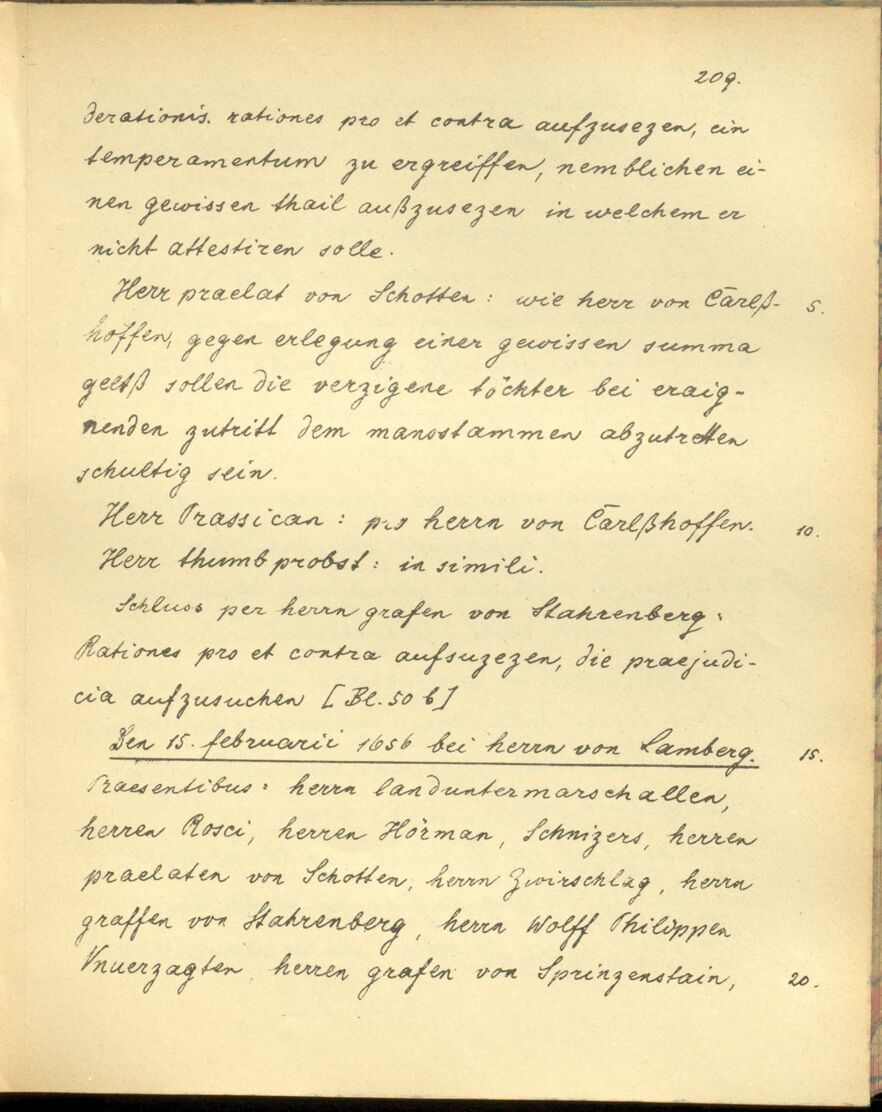 209.
derationis. rationes pro et contra aufzusezen, ein
temperamentum zu ergreiffen, nemblichen ei-
nen gewissen thail außzusezen in welchem er
nicht attestiren solle.
Herr praelat von Schotten: wie herr von Carlß- 5.
hoffen, gegen erlegung einer gewissen summa
geltß sollen die verzigene töchter bei eraig-
nenden zutritt dem manostammen abzutretten
schultig sein.
Herr Prassican: pro herrn von Carlßhoffen. 10.
Herr thumbprobst: in simili.
Schluss per herrn grafen von Stahrenberg:
Rationes pro et contra aufsuzezen, die praejudi-
cia aufzusuchen [Bl. 50 b]
Den 15. februarii 1656 bei herrn von Lamberg. 15.
Praesentibus: herrn landuntermarschallen,
herren Rosci, herren Hörman, Schnizers, herren
praelaten von Schotten, herrn Zwirschlag, herrn
graffen von Stahrenberg, herrn Wolff Philippen
Vnuerzagten, herren grafen von Sprinzenstain, 20.